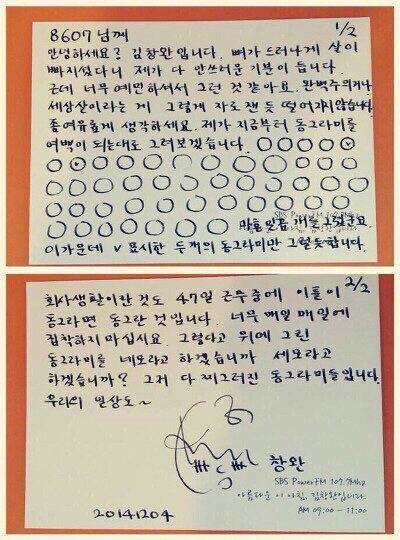 8607님께 1/2
안녕하세요? 김창완입니다. 뼈가 드러나게 살이
빠지셨다니 제가 다 안쓰러운 기분이 듭니다.
근데 너무 예민하셔서 그런 것 같아요. 완벽주의거나
세상살이라는 게 그렇게 자로 잰 듯 떨어지지않습니다.
좀 여유롭게 생각하세요. 제가 지금부터 동그라미를
여백이 되는대로 그려보겠습니다.
v
v
마흔일곱 개를 그렸군요.
SBS PowerFM 107.7Mhz
이 가운데 v 표시한 두개의 동그라미만 그럴듯합니다.
회사생활이란 것도 47일 근무중에 이틀이 2/2
동그라면 동그란 것입니다. 너무 매일 매일에
집착하지 마십시요. 그렇다고 위에 그린
동그라미를 네모라고 하겠습니까 세모라고
하겠습니까? 그저 다 찌그러진 동그라미들입니다.
우리의 일상도~
창완
SBS PowerFM 107.7Mhz
아름다운 이 아침, 김창완입니다.
AM 09:00 - 11:00
20141204